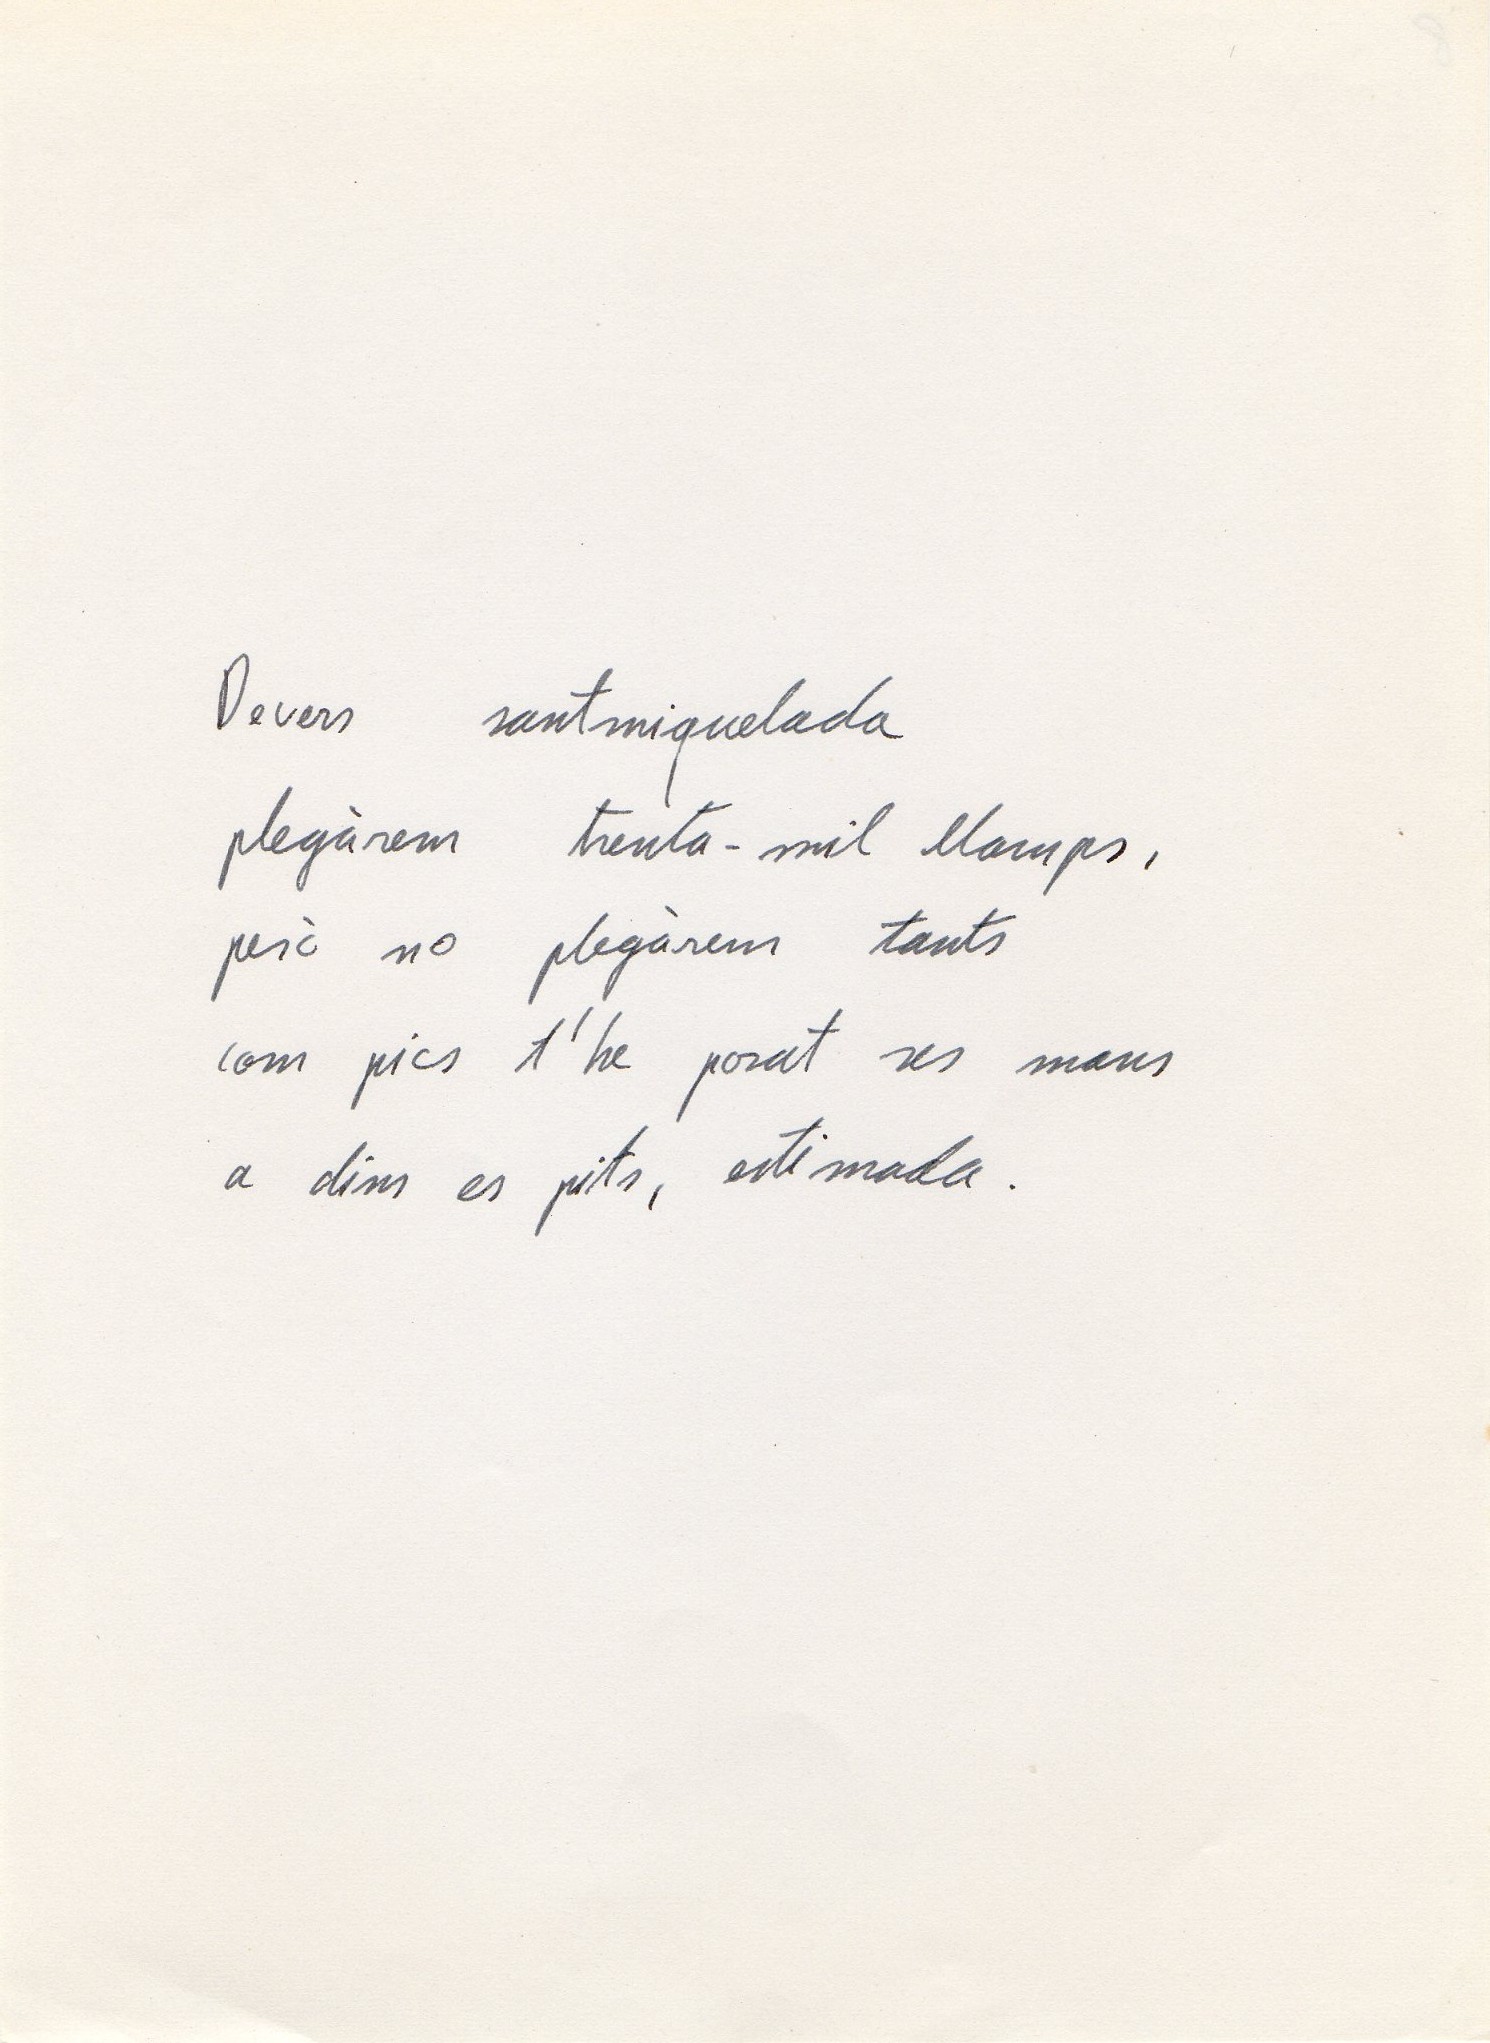 Devers santmiquelada
plegàrem trenta-mil llamps,
però no plegàrem tants
com pics t'he posat ses mans
a dins es pits, estimada.